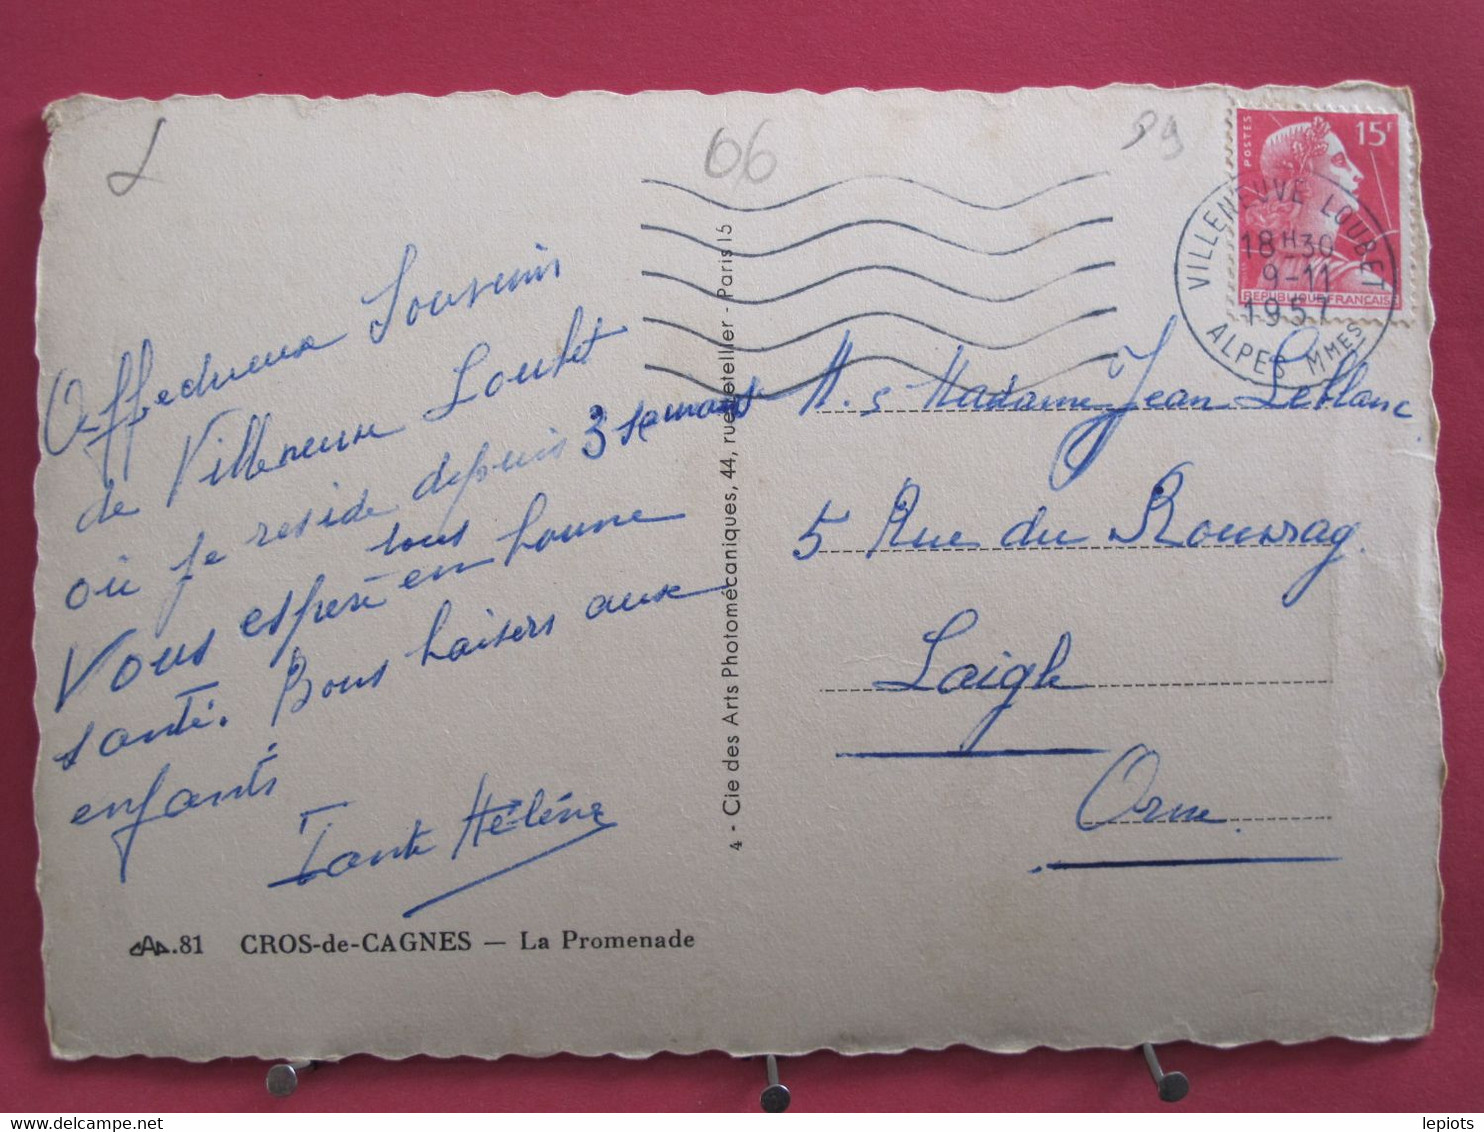 L
66
99
Affectueux Souvenirs
de Villeneuve Loubet
où je reside depuis 3 semaines
Vous espère tous en bonne
santé. Bons baisers aux
enfants
Tante Hélène
CAP.81 CROS-de-CAGNES — La Promenade
4 - Cie des Arts Photomécaniques, 44, rue Letellier - Paris 15
POSTES
15F
REPUBLIQUE FRANÇAISE
VILLENEUVE LOUBET
18H30
9-11
1957
ALPES MMES
M. & Madame Jean Leblanc
5 Rue du Rouvray.
Laigle
Orne.
lepiots